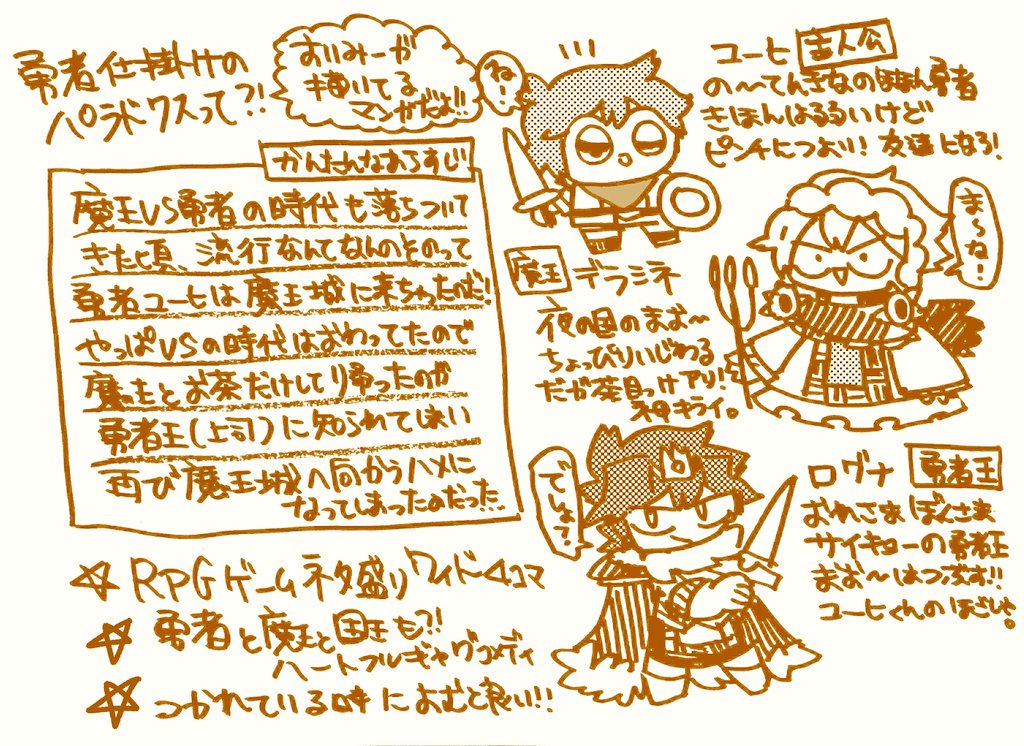 勇者仕掛けの
パラドクスって?!
おいみーが
描いてる
マンガだよ!!
ね!
かんたんなあらすじ
魔王VS勇者の時代も落ちついて
きた頃、流行なんてなんのそのって
勇者ユーヒは魔王城に来ちゃったのだ!
やっぱVSの時代はおわってたので
魔王とお茶だけして帰ったのが
勇者王(上司)に知られてしまい
再び魔王城へ向かうハメに
なってしまったのだった…
☆ RPGゲームネタ盛りワイド4コマ
☆ 勇者と魔王と国王も?!
ハートフルギャグコメディ
☆ つかれている時によむと良い!!
ユーヒ 主人公
の〜てんきなのほほん勇者
きほんはるるいけど
ピンチにつよい! 友達になろ!
ま〜ね!
魔王 デラミネ
夜の国のまお〜
ちょっぴりいじわる
だが茶目っけアリ!
神キライ。
でしょ?
ログナ 勇者王
おれさま ぼんさま
サイキョーの勇者王
まお〜はつぶす!!
ユーヒくんのほごしゃ。